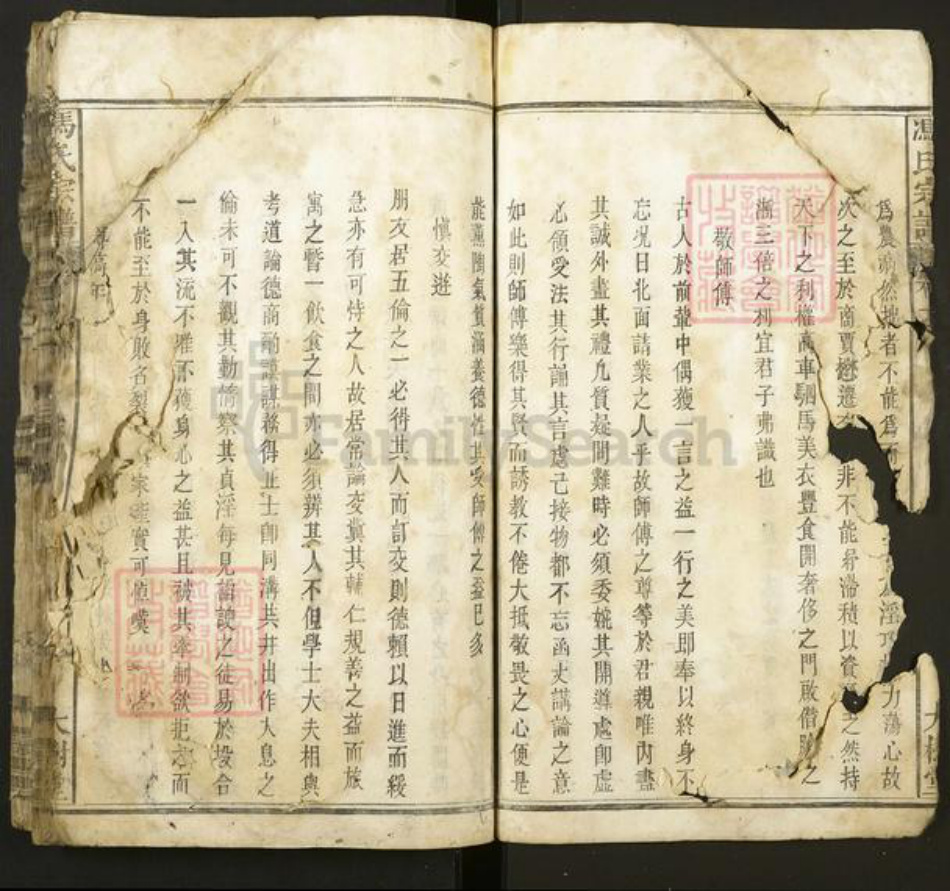 馮氏宗譜
大樹堂
為農者然拙者不能為
次之至於商賈懋遷 非不能舒滯積以資 之然持
淫巧 力蕩心故
天下之利權高車駟馬美衣豐食開奢侈之門啟僭 之
漸三倍之利宜君子弗識也
敬師傅
古人於前輩中偶獲一言之益一行之美即奉以終身不
忘况日北面請業之人乎故師傅之尊等於君親唯內盡
其誠外盡其禮凡質疑問難時必須委婉其開導處即虛
心領受法其行誦其言處己接物都不忘函丈講論之意
如此則師傅樂得其賢而誘教不倦大抵敬畏之心便是
能薰陶氣質涵養德性其受師傅之益已多
慎交遊
朋友居五倫之一必得其人而訂交則德賴以日進而緩
急亦有可恃之人故居常論交冀其輔仁規善之益而旅
寓之暫一飲食之間亦必須辨其人不但學士大夫相與
考道論德商 謀務得正士即同溝共井出作入息之
倫未可不觀其勤惰察其貞淫每見諂諛之徒易於投合
一入其流不唯不獲身心之益甚且被其牽制欲拒之而
不能至於身敗名裂 家產實可慨嘆
馮氏宗譜
大樹堂
FamilySearch